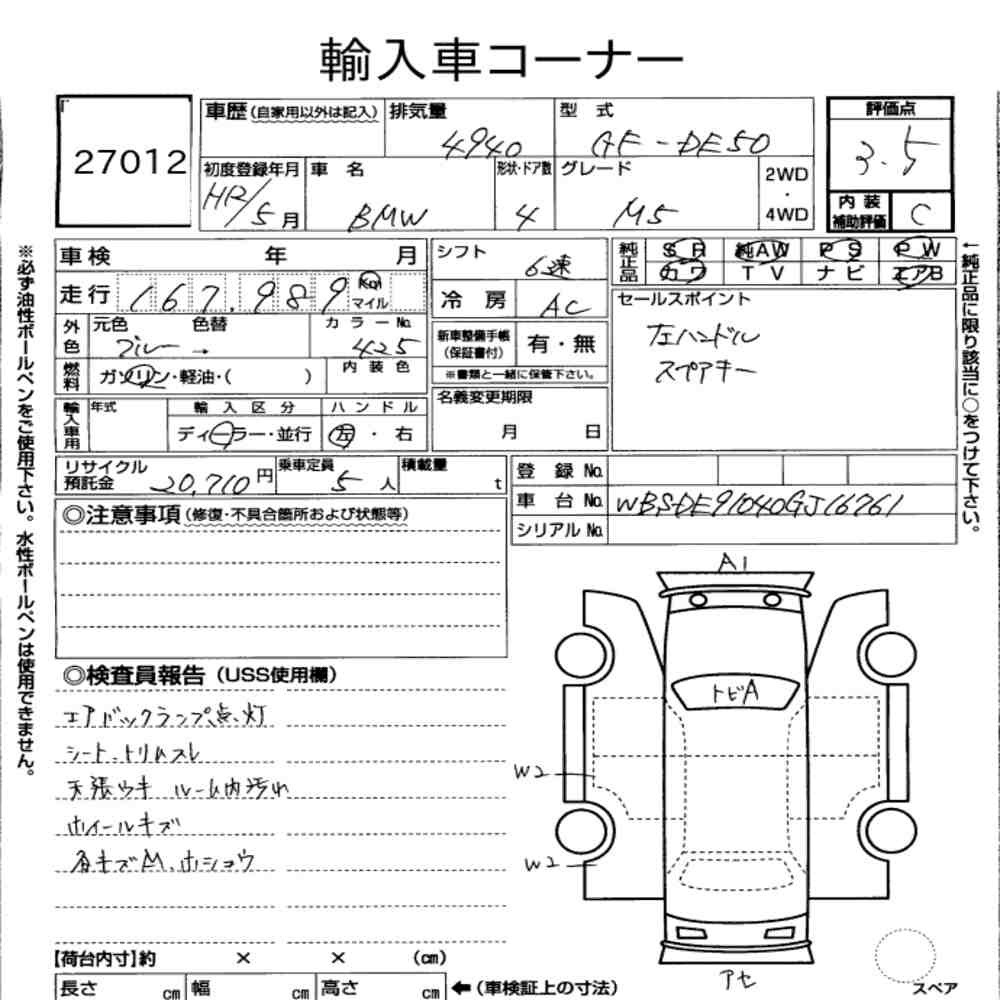 輸入車コーナー
27012
車歴(自家用以外は記入) 排気量 4940 型式 GF-DE50 評価点 3.5
初度登録年月 5月 車名 BMW 形状・ドア数 4 グレード M5 2WD・4WD 内装補助評価 C
車検 年 月 シフト 6速 純正品 SR 純AW PS PW
カワ TV ナビ エアB
走行 167,989 Km マイル 冷房 AC セールスポイント
左ハンドル
スペアキー
外色 元色 ブルー → 色替 カラーNo. 425 新車整備手帳(保証書付) 有・無
※書類と一緒に保管下さい。
燃料 ガソリン・軽油・( ) 内装色
名義変更期限 月 日
輸入車用 年式 輸入区分 ディーラー・並行 ハンドル 左・右
リサイクル預託金 20,710円 乗車定員 5人 積載量 t
登録No.
車台No. WBSDE91040GJ16761
シリアルNo.
◎注意事項(修復・不具合箇所および状態等)
◎検査員報告(USS使用欄)
エアバックランプ点灯
シート、トリムスレ
天張ウキ ルーム内汚れ
ホイールキズ
各キズM、ホショウ
A1
トビA
W2
W2
アセ
スペア
【荷台内寸】約 × × (cm)
長さ cm 幅 cm 高さ cm ←(車検証上の寸法)
※必ず油性ボールペンをご使用下さい。水性ボールペンは使用できません。
←純正品に限り該当に○をつけて下さい。